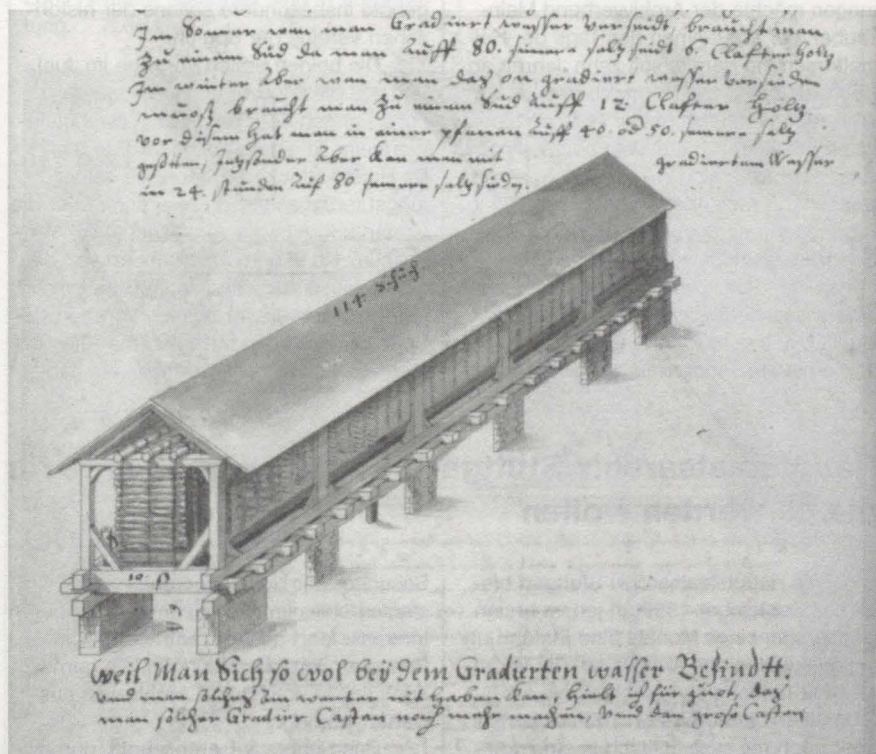 Im Sommer wan man Gradiert wasser verseidt, braucht man
zu einem Sud da man auff 80. simere saltz seidt 6 Claffter holtz
Im winter aber wan man daß on gradiert wasser versieden
muosz braucht man zu einem Sud auff 12. Claffter Holtz
vor disem hat man in einer pfannen auff 40. od 50. semere saltz
gesotten, Jetzsonder aber kan man mit gradiertem Wasser
in 24. stunden auf 80 semere saltz sieden.
114. Schuch
10.
6
weil Man Sich so wol beÿ dem Gradierten wasser Befindtt.
vnd man solches Im wenter nit haben kan, hielt ich für guot, daß
man solcher Gradier Casten noch mehr machen, vnd den grose Casten